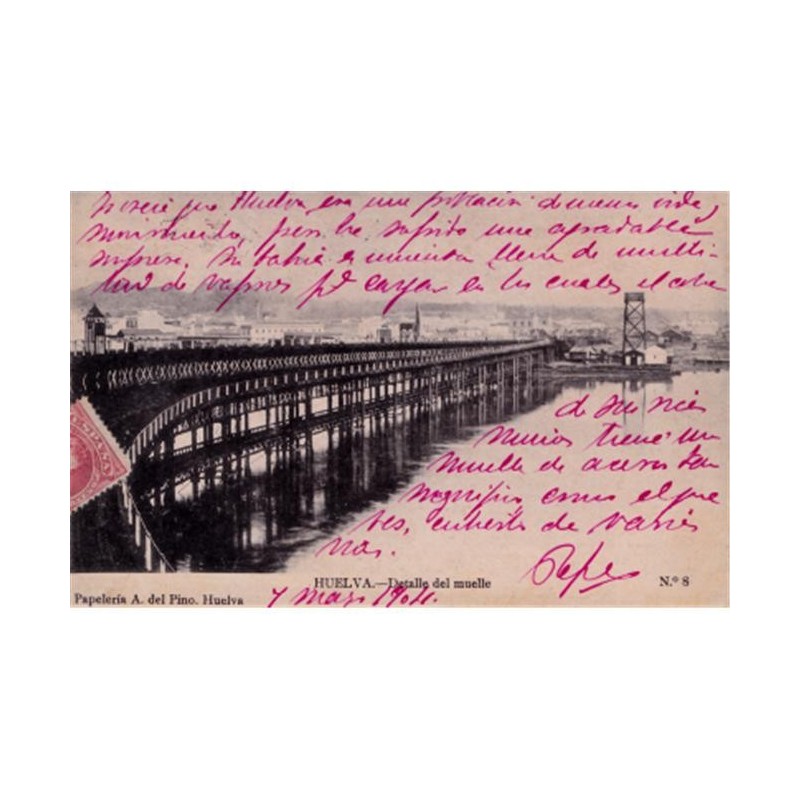 que Huelva era una población de menos vida y
movimiento, pero he sufrido una agradable
sorpresa. Su bahía es inmensa llena de multi-
tud de vapores pª cargar en los cuales el cobre
de sus
minas tiene un
muelle de acero tan
magnífico como el que
ves, cubierto de varias
vias.
Pepe
ESPAÑA
HUELVA.—Detalle del muelle
N.º 8
Papelería A. del Pino. Huelva
7 marzo 1904.